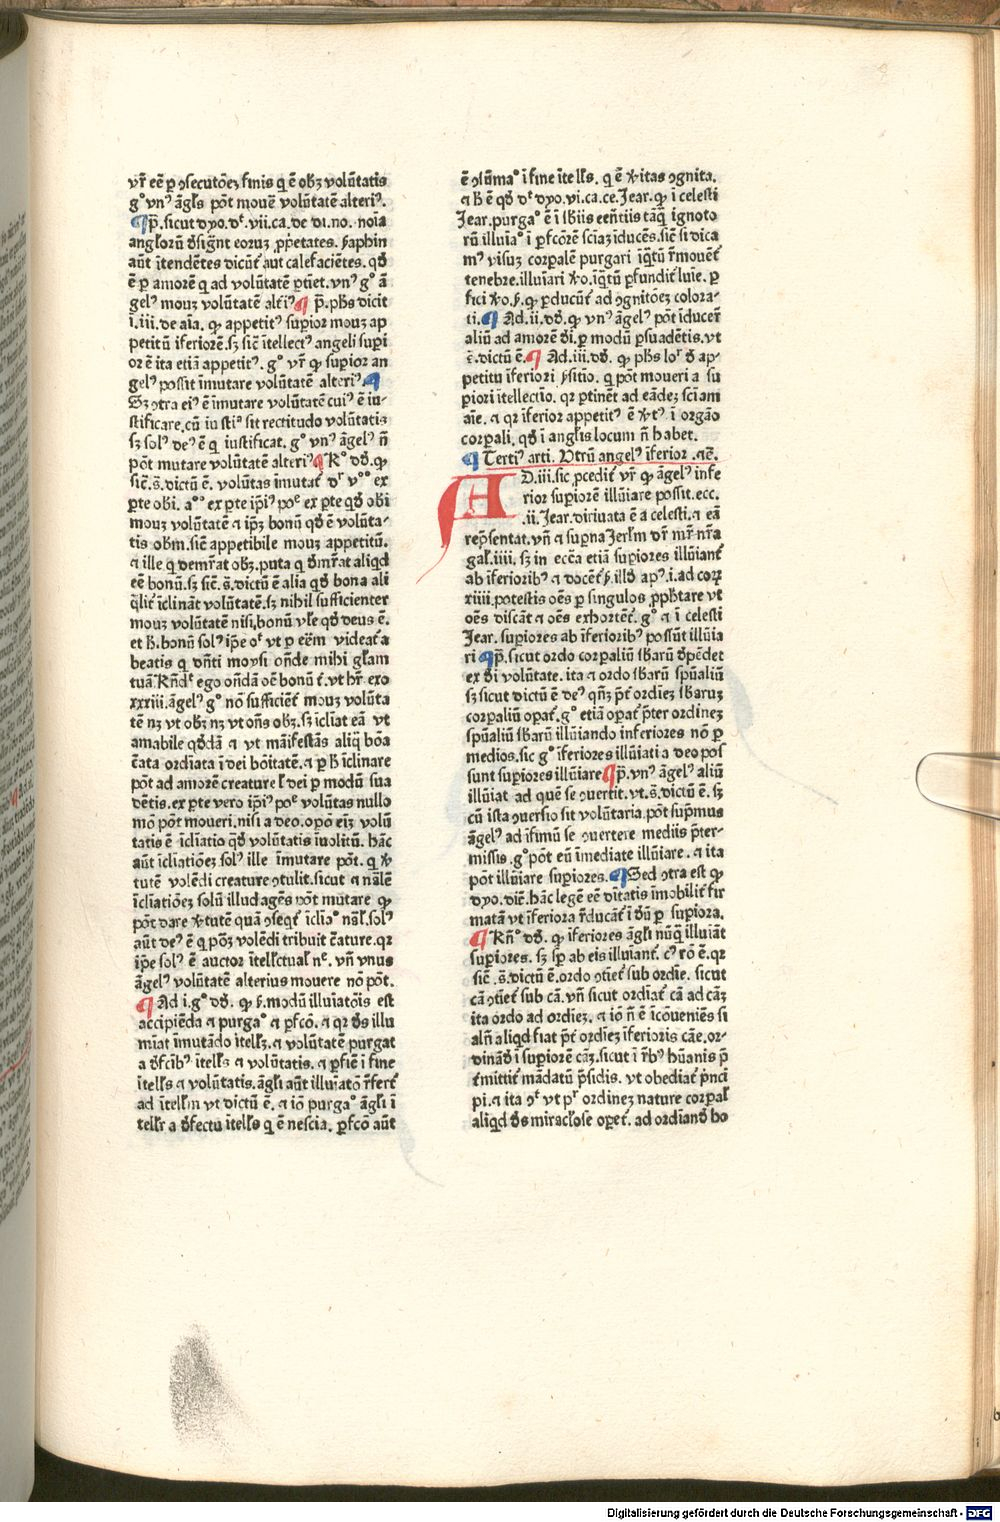 vr̄ eē ꝑ ɔsecutōeꝫ finis q̄ ē obꝫ volūtatis
g° vnꝰ āgłs pōt mouē volūtatē alteriꝰ.
¶ p̄. sicut dyo. dr̄. vii. ca. de di. no. noīa
angłorū ꝺsign̄t eoruꝫ ꝓp̄etates. s̄aphin
aūt ītendētes dicūt̄ aut calefaciētes. qꝺ
ē ꝑ amorē q̄ ad volūtatē ꝑtiet̄. vnꝰ g° ā
gelꝰ mouꝫ volūtatē alt̄iꝰ ¶ p̄. ph̄s dicit
i. iii. de aīa. ꝙ appetitꝰ suꝑior mouꝫ ap
petitū īferiorē. sꝫ sic̄ ītellectꝰ angeli suꝑi
or ē ita etiā appetitꝰ. g° vr̄ ꝙ suꝑior an
gelꝰ possit īmutare volūtatē alteriꝰ. ¶
Sꝫ ɔtra eiꝰ ē īmutare volūtatē cuiꝰ ē iu-
stificare, cū iustiª sit rectitudo volūtatis
sꝫ solꝰ deꝰ ē q̄ iustificat. g° vnꝰ āgelꝰ n̄
pōt mutare volūtatē alteriꝰ ¶ R° dꝺ. ꝙ
sic̄. s̄. dictū ē. volūtas īmutat̄ dr̄ v°° ex
ꝑte obi. a°° ex ꝑte ip̄iꝰ po° ex ꝑte qꝺ obi
mouꝫ volūtatē ⁊ ip̄ꝫ bonū qꝺ ē volūta-
tis obm̄. sic̄ appetibile mouꝫ appetitū.
⁊ ille q̄ demr̄at obꝫ. puta q̄ ꝺmr̄at aliqd
eē bonū. sꝫ sic̄. s̄. dictū ē alia qꝺ bona ali
q̄lit̄ īclināt volūtatē. sꝫ nihil sufficienter
mouꝫ volūtatē nisi, bonū vl̄e qꝺ deus ē.
et h̄. bonū solꝰ ip̄e oͨ vt ꝑ eēm videat̄ a
beatis q̄ dn̄ti moysi on̄de mihi gl̄am
tuā. Rn̄ꝺ° ego ondā oē bonū t̄. vt hr̄. exo
xxxiii. āgelꝰ g° nō sufficiēt̄ mouꝫ volūta
tē nꝫ vt obꝫ nꝫ vt on̄s obꝫ. sꝫ īcliat eā vt
amabile qꝺdā ⁊ vt māifestās aliq̄ bōa
c̄ata ordiata ī dei bōitatē. ⁊ ꝑ h̄ īclinare
pōt ad amorē creature ł dei ꝑ modū sua
dētis. ex ꝑte vero ip̄iꝰ po° volūtas nullo
mō pōt moueri. nisi a deo. oꝑō eīꝫ volū
tatis ē īcliatio qꝺ volūtatis īuolitū. hāc
aūt īcliatiōeꝫ solꝰ ille īmutare pōt. q̄ ꝟ
tutē volēdi creature ɔtulit. sicut ⁊ nālē
īcliatiōeꝫ solū illud agēs pōt mutare ꝙ
pōt dare ꝟtutē quā ɔseqt̄ īcliaº nał. solꝰ
aūt deꝰ ē q̄ pōꝫ volēdi tribuit c̄ature. qꝛ
ip̄e solꝰ ē auctor ītellectual̄ n°. vn̄ vnus
āgelꝰ volūtatē alterius mouere nō pōt.
¶ Ad i. g° dꝺ. ꝙ s̄. modū illuiatōis est
accipiēda ⁊ purgaº ⁊ ꝑfcō. ⁊ qꝛ ꝺs illu
miat īmutādo ītellꝫ. ⁊ volūtatē purgat
a ꝺfcibꝰ ītell̄s ⁊ volūtatis. ⁊ ꝑfic̄ ī fine
ītell̄s ⁊ volūtatis. āgłi aūt illuiatō r̄fert̄
ad ītellm̄ vt dictū ē. ⁊ iō purgaº āgłi ī
tellr̄ a ꝺfectu ītell̄s q̄ ē nescia. ꝑfcō aūt
ē ɔsūmaº ī fine ītell̄s. q̄ ē ꝟitas ɔgnita.
⁊ h̄ ē qꝺ d° dyo. vi. ca. ce. Jear. ꝙ ī celesti
Jear. purgaº ē ī sb̄iis eēn̄tiis tāq̄ ignoto
rū illuīaº ī ꝑfcōrē sciaꝫ īducēs. sic̄ si dica
mꝰ visuꝫ corꝑalē purgari īq̄tū r̄mouēt̄
tenebre. illuīari ꝟo. īq̄tū ꝑfundit̄ luīe. ꝑ
fici ꝟo. s̄. ꝙ ꝑducūt̄ ad ɔgnitōeꝫ colora-
ti. ¶ Ad. ii. dꝺ. ꝙ vnꝰ āgelꝰ pōt iducer̄
aliū ad amorē ꝺi. ꝑ modū ꝑsuadētis. vt
s̄. dictū ē. ¶ Ad. iii. dꝺ. ꝙ ph̄s loͬ ꝺ ap-
petitu īferiori s̄sitio. q̄ pōt moueri a su
ꝑiori ītellectio. qꝛ ꝑtinēt ad eādeꝫ sci am
aīe. ⁊ qꝛ īferior appetitꝰ ē ꝟtꝰ ī orgāo
corꝑali. qꝺ ī angłis locum n̄ habet.
¶ Tertiꝰ arti. Utrū angelꝰ īferior ⁊c̄.
AD. iii. sic ꝓcedit̄ vr̄ ꝙ āgelꝰ infe
rior suꝑiorē illūiare possit. ecc.
.ii. Jear. diriuata ē a celesti. ⁊ eā
rep̄sentat. vn̄ ⁊ suꝑna Jerłm dr̄ mr̄ nr̄a
gał. iiii. sꝫ in ecc̄a etiā suꝑiores illūiant̄
ab īferioribꝰ ⁊ docēt̄ s̄. illꝺ apꝰ. i. ad coꝝ
xiiii. potestis oēs ꝑ singulos ꝓph̄tare vt
oēs discāt ⁊ oēs exhortēt̄. g° ⁊ ī celesti
Jear. suꝑiores ab īferioribꝰ possūt illūia
ri ¶ p̄. sicut ordo corꝑaliū sb̄arū ꝺpēdet
ex ꝺi volūtate. ita ⁊ ordo sb̄arū spūaliū
sꝫ sicut dictū ē deꝰ qn̄ꝫ p̄t̄ ordīeꝫ sb̄aruꝫ
corꝑaliū oꝑat̄. g° etiā oꝑat̄ p̄ter ordineꝫ
spūaliū sb̄arū illūiando inferiores nō ꝑ
medios. sic g° īferiores illūiati a deo pos
sunt suꝑiores illūiare ¶ p̄. vnꝰ āgelꝰ aliū
illūiat ad quē se ɔuertit. vt. s̄. dictū ē. sꝫ
cū ista ɔuersio sit volūtaria. pōt sup̄mus
āgelꝰ ad īfimū se ɔuertere mediis p̄ter-
missis. g° pōt eū īmediate illūiare. ⁊ ita
pōt illūiare suꝑiores. ¶ Sed ɔtra est ꝙ
dyo. dic̄. hāc legē eē ꝺitatis īmobilit̄ fir
matā vt īferiora r̄ducāt̄ ī ꝺū ꝑ suꝑiora.
¶ Rn̄° dꝺ. ꝙ īferiores āgłi nūq̄ illuīāt
suꝑiores. sꝫ sp̄ ab eis illuiant̄. cꝰ rō ē. qꝛ
sic̄. s̄. dictū ē. ordo ɔtiet̄ sub ordīe. sicut
cā ɔtiet̄ sub cā. vn̄ sicut ordiat̄ cā ad cāꝫ
ita ordo ad ordīeꝫ. ⁊ iō n̄ ē īcoueniēs si
aln̄ aliqd fiat p̄t̄ ordīeꝫ īferioris cāe. or-
dināꝺ ī suꝑiorē cāꝫ. sicut ī r̄bꝰ hūanis p̄
t̄mittit̄ mādatū p̄sidis. vt obediat̄ p̄nci
pi. ⁊ ita ɔt̄ vt pͬ ordineꝫ nature corꝑał
aliqd ꝺs miracłose oꝑet̄. ad ordianꝺ ho
Digitalisierung gefördert durch die Deutsche Forschungsgemeinschaft - DFG